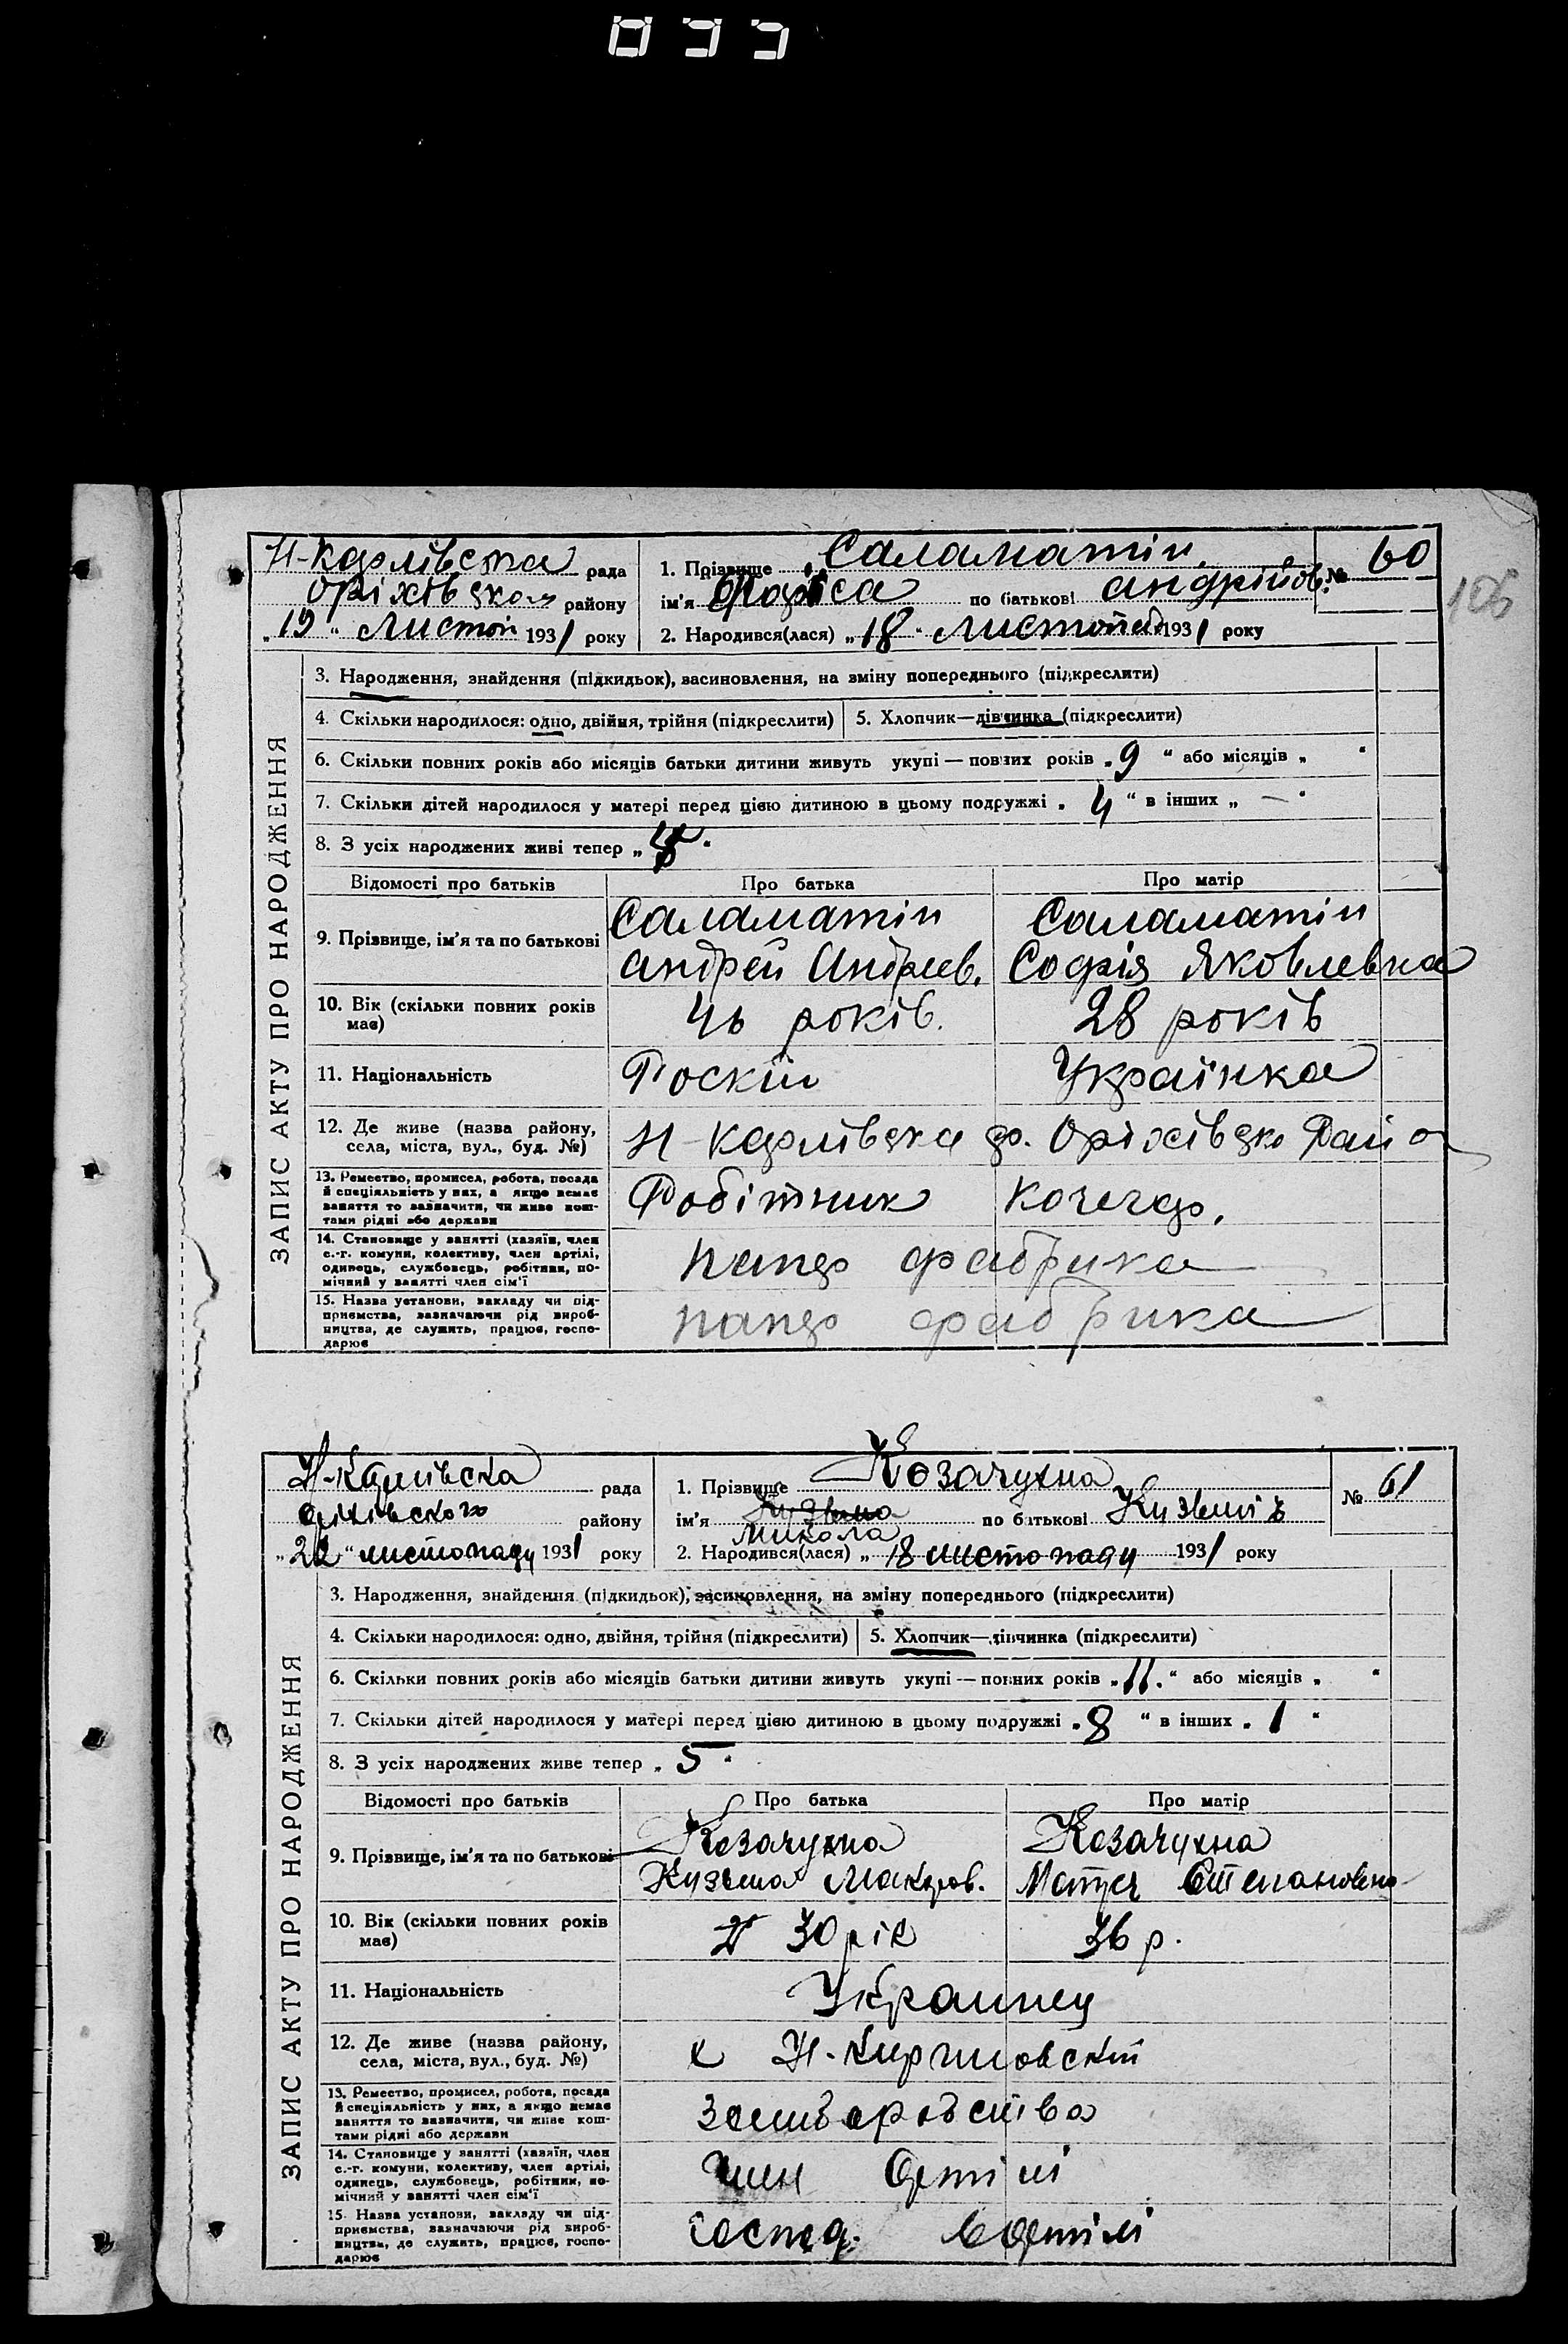 Н-Карлівська рада
Оріхівського району
„19“ Листоп 1931 року
1. Прізвище Саламатін
ім'я Фаріса по батькові Андрійов.
№ 60
106
2. Народився(лася) „18“ Листопад 1931 року
ЗАПИС АКТУ ПРО НАРОДЖЕННЯ
3. Народження, знайдення (підкидьок), засиновлення, на зміну попереднього (підкреслити)
4. Скільки народилося: одно, двійня, трійня (підкреслити) 5. Хлопчик—дівчинка (підкреслити)
6. Скільки повних років або місяців батьки дитини живуть укупі — повних років „9“ або місяців „ “
7. Скільки дітей народилося у матері перед цією дитиною в цьому подружжі „4“ в інших „—“
8. З усіх народжених живі тепер „
Відомості про батьків Про батька Про матір
9. Прізвище, ім'я та по батькові
Саламатін Саламатін
Андрей Андреев. Софія Яковлевна
10. Вік (скільки повних років має) 46 років. 28 років
11. Національність Роскій Українка
12. Де живе (назва району,
села, міста, вул., буд. №)
Н-Карлівська Оріхівсько Район
13. Ремество, промисел, робота, посада
й спеціяльність у них, а якщо немає
заняття то зазначити, чи живе кош-
тами рідні або держави
Робітник Кочегар.
14. Становище у занятті (хазяїн, член
с.-г. комуни, колективу, член артілі,
одинець, службовець, робітник, по-
мічний у занятті член сім'ї
папер фабрика
15. Назва установи, закладу чи під-
приємства, зазначаючи рід вироб-
ництва, де служить, працює, госпо-
дарює
папер фабрика
Н-Карлівська рада
Оріхівського району
„22“ листопаду 1931 року
1. Прізвище Козачухна
ім'я Кузьма по батькові Кузьміч
Микола
№ 61
2. Народився(лася) „18 листопаду 1931 року
ЗАПИС АКТУ ПРО НАРОДЖЕННЯ
3. Народження, знайдення (підкидьок), засиновлення, на зміну попереднього (підкреслити)
4. Скільки народилося: одно, двійня, трійня (підкреслити) 5. Хлопчик—дівчинка (підкреслити)
6. Скільки повних років або місяців батьки дитини живуть укупі — повних років „11.“ або місяців „ “
7. Скільки дітей народилося у матері перед цією дитиною в цьому подружжі „8“ в інших „1“
8. З усіх народжених живе тепер „5“
Відомості про батьків Про батька Про матір
9. Прізвище, ім'я та по батькові
Козачухна Козачухна
Кузьма Макаров. Степановна
10. Вік (скільки повних років має) 30 рік 36 р.
11. Національність Украинец
12. Де живе (назва району,
села, міста, вул., буд. №)
х Н-Карловский
13. Ремество, промисел, робота, посада
й спеціяльність у них, а якщо немає
заняття то зазначити, чи живе кош-
тами рідні або держави
14. Становище у занятті (хазяїн, член
с.-г. комуни, колективу, член артілі,
одинець, службовець, робітник, по-
мічний у занятті член сім'ї
член Артілі
15. Назва установи, закладу чи під-
приємства, зазначаючи рід вироб-
ництва, де служить, працює, госпо-
дарює
Господ. в Артілі